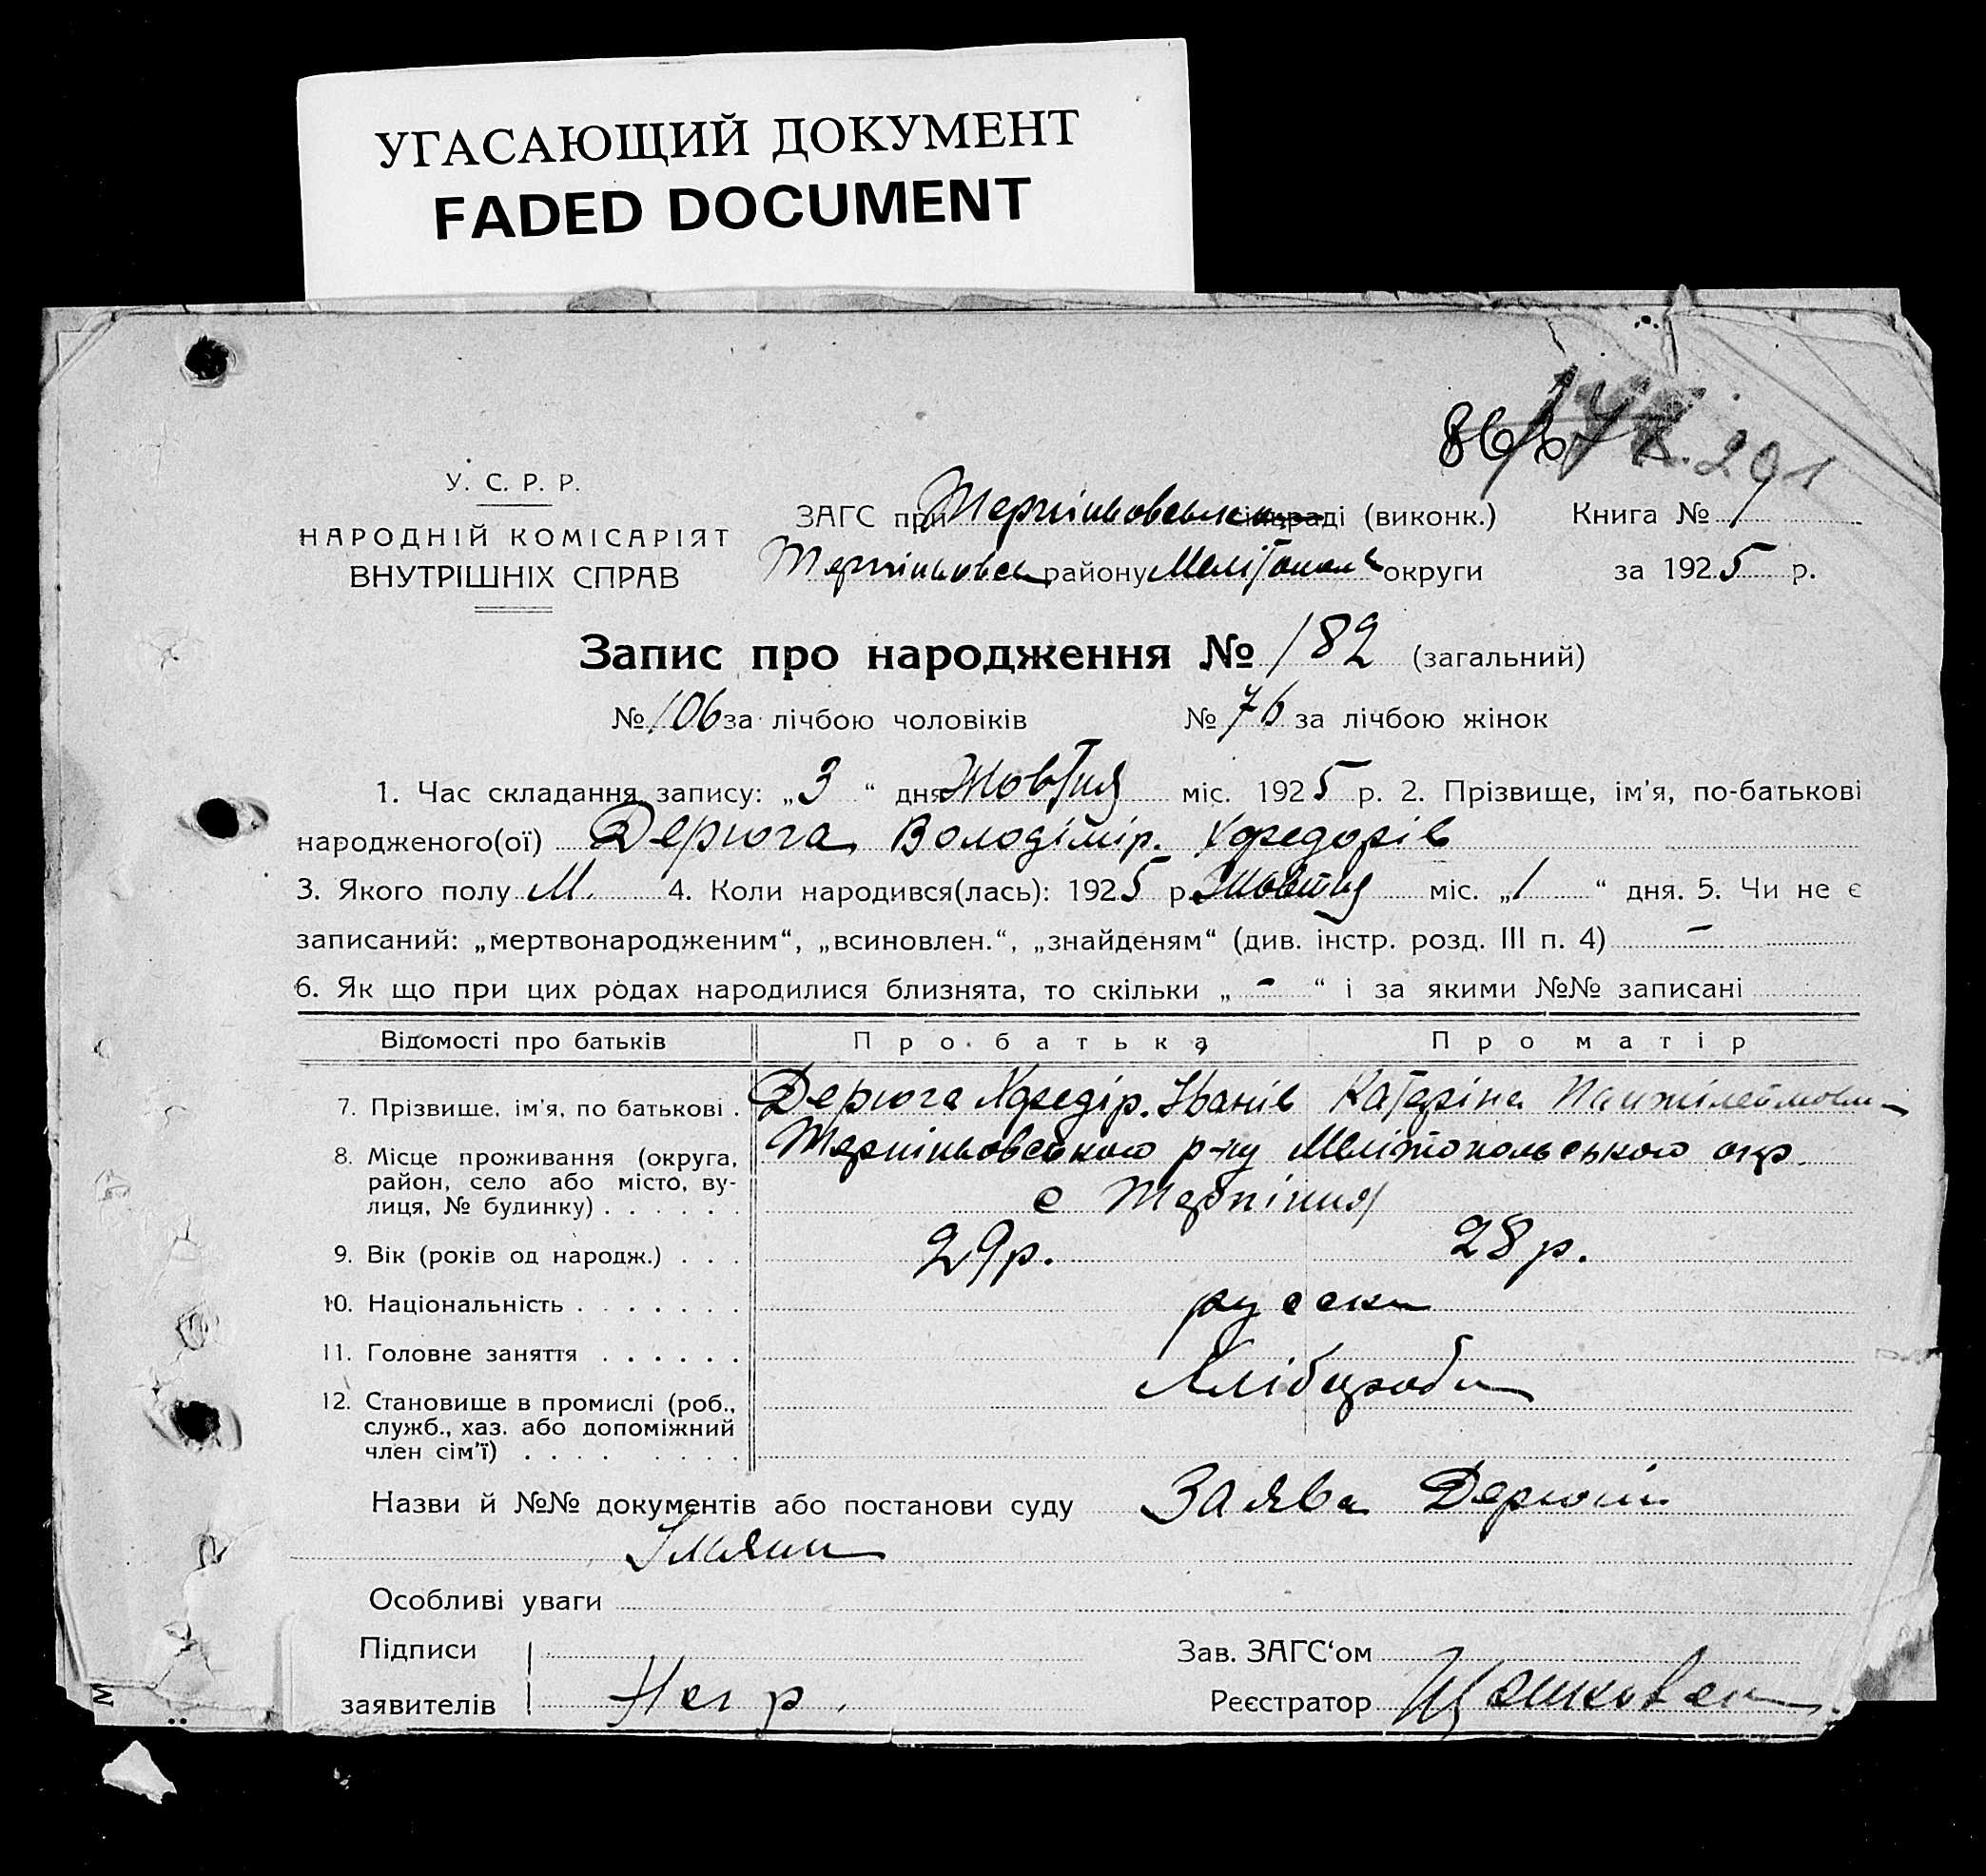 УГАСАЮЩИЙ ДОКУМЕНТ
FADED DOCUMENT
291
У. С. Р. Р.
НАРОДНІЙ КОМІСАРІЯТ
ВНУТРІШНІХ СПРАВ
ЗАГС при раді (виконк.) Книга № 1
району Мелітополь округи за 1925 р.
Запис про народження № 182 (загальний)
№ 106 за лічбою чоловіків № 76 за лічбою жінок
1. Час складання запису: „ 3 “ дня Жовтня міс. 1925 р. 2. Прізвище, ім'я, по-батькові
народженого(ої) Дерюга Володімір. Хфедорів
3. Якого полу М. 4. Коли народився(лась): 1925 р. Жовтня міс. „ 1 “ дня. 5. Чи не є
записаний: „мертвонародженим“, „всиновлен.“, „знайденям“ (див. інстр. розд. III п. 4) -
6. Як що при цих родах народилися близнята, то скільки „ - “ і за якими №№ записані
Відомості про батьків Про батька Про матір
7. Прізвище, ім'я, по батькові . Дерюга Хфедір. Іванів Катеріна
8. Місце проживання (округа, Терпіньовського р-ну Мелітопольського окр.
район, село або місто, ву-
лиця, № будинку) . . . . . . с Терпіння
9. Вік (років од народж.) . . . 29 р. 28 р.
10. Національність . . . . . . . руски
11. Головне заняття . . . . . .
Хлібороби
12. Становище в промислі (роб.,
служб., хаз. або допоміжний
член сім'ї) . . . . . . . .
Назви й №№ документів або постанови суду Заява Дерюги
Особливі уваги
Підписи Зав. ЗАГС‘ом
заявителів Негр. Реєстратор